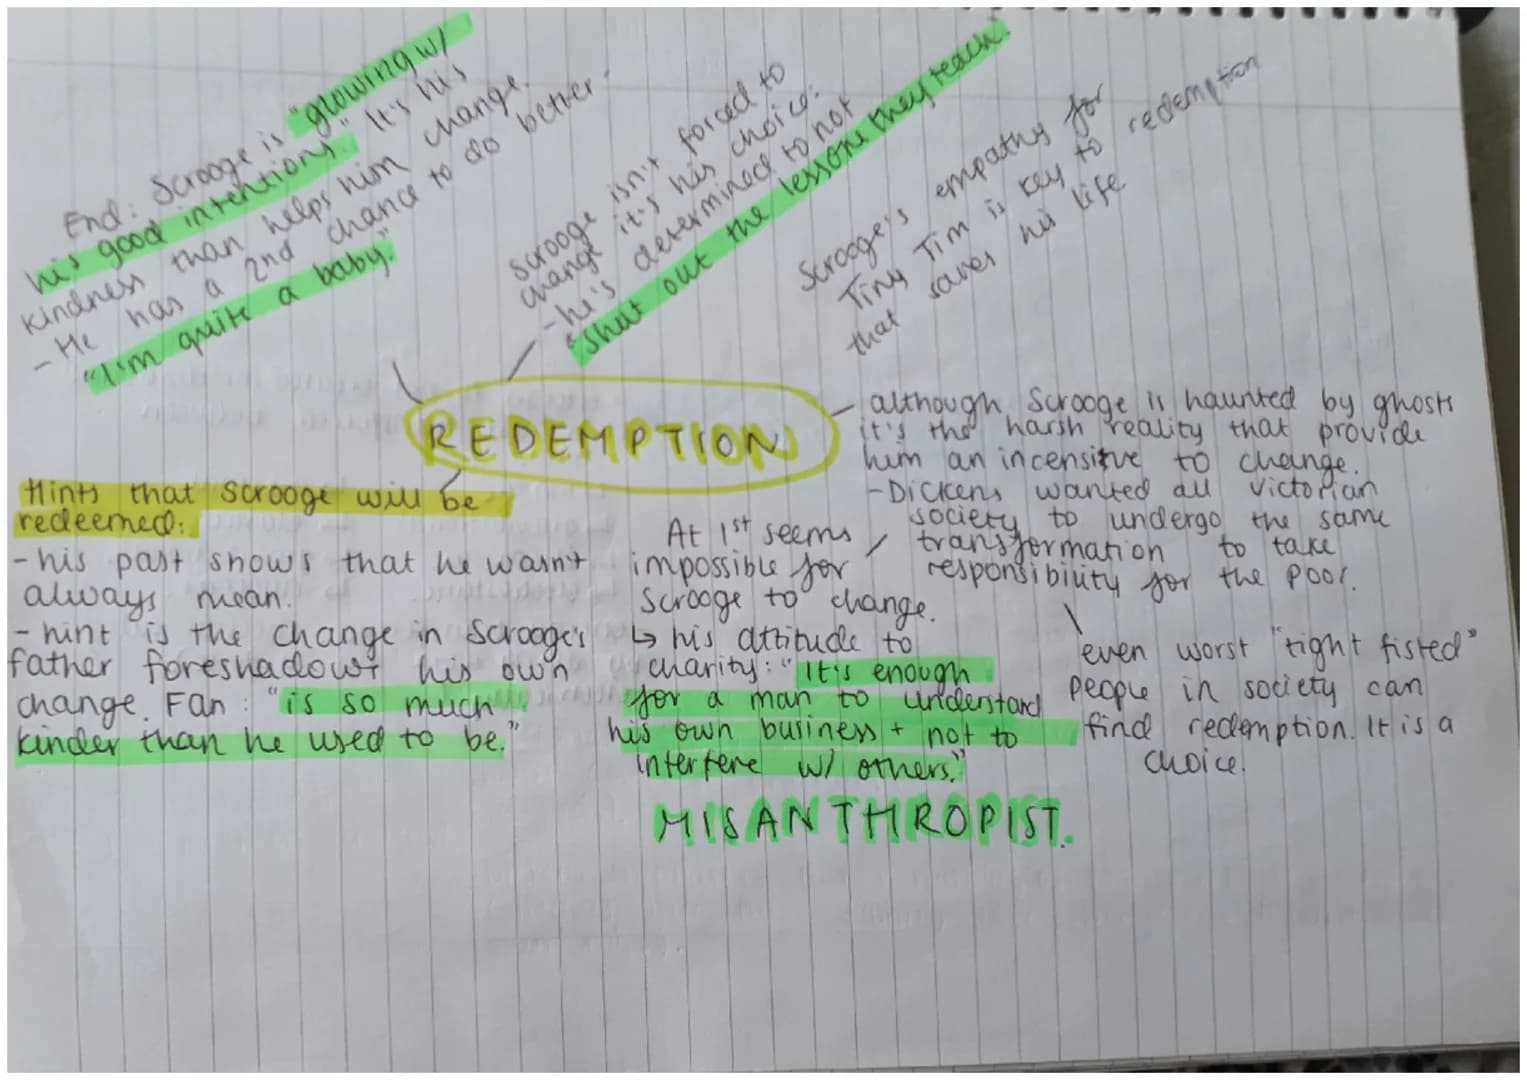 End: Scrooge is "glowing w/
his good intentions." It's his
kindness than helps him change.
- He has a 2nd chance to do better
"I'm quite a baby."
Scrooge isn't forced to
change it's his choice:
- he's determined to not
"Shut out the lessons they teach."
Scrooge's empathy for
Tiny Tim is key to redemption
that saves his life
REDEMPTION
although Scrooge is haunted by ghosts
it's the harsh reality that provide
him an incensitve to change.
- Dickens wanted all Victorian
society to undergo the same
transformation to take
responsibility for the poor.
even worst "tight fisted"
people in society can
find redemption. It is a
choice.
At 1st seems
impossible for
Scrooge to change.
↳ his attitude to
charity: "It's enough
for a man to understand
his own business + not to
interfere w/ others."
MISANTHROPIST.
Hints that Scrooge will be
redeemed:
- his past shows that he wasn't
always mean.
- hint is the change in Scrooge's
father foreshadows his own
change. Fan: "is so much
kinder than he used to be."